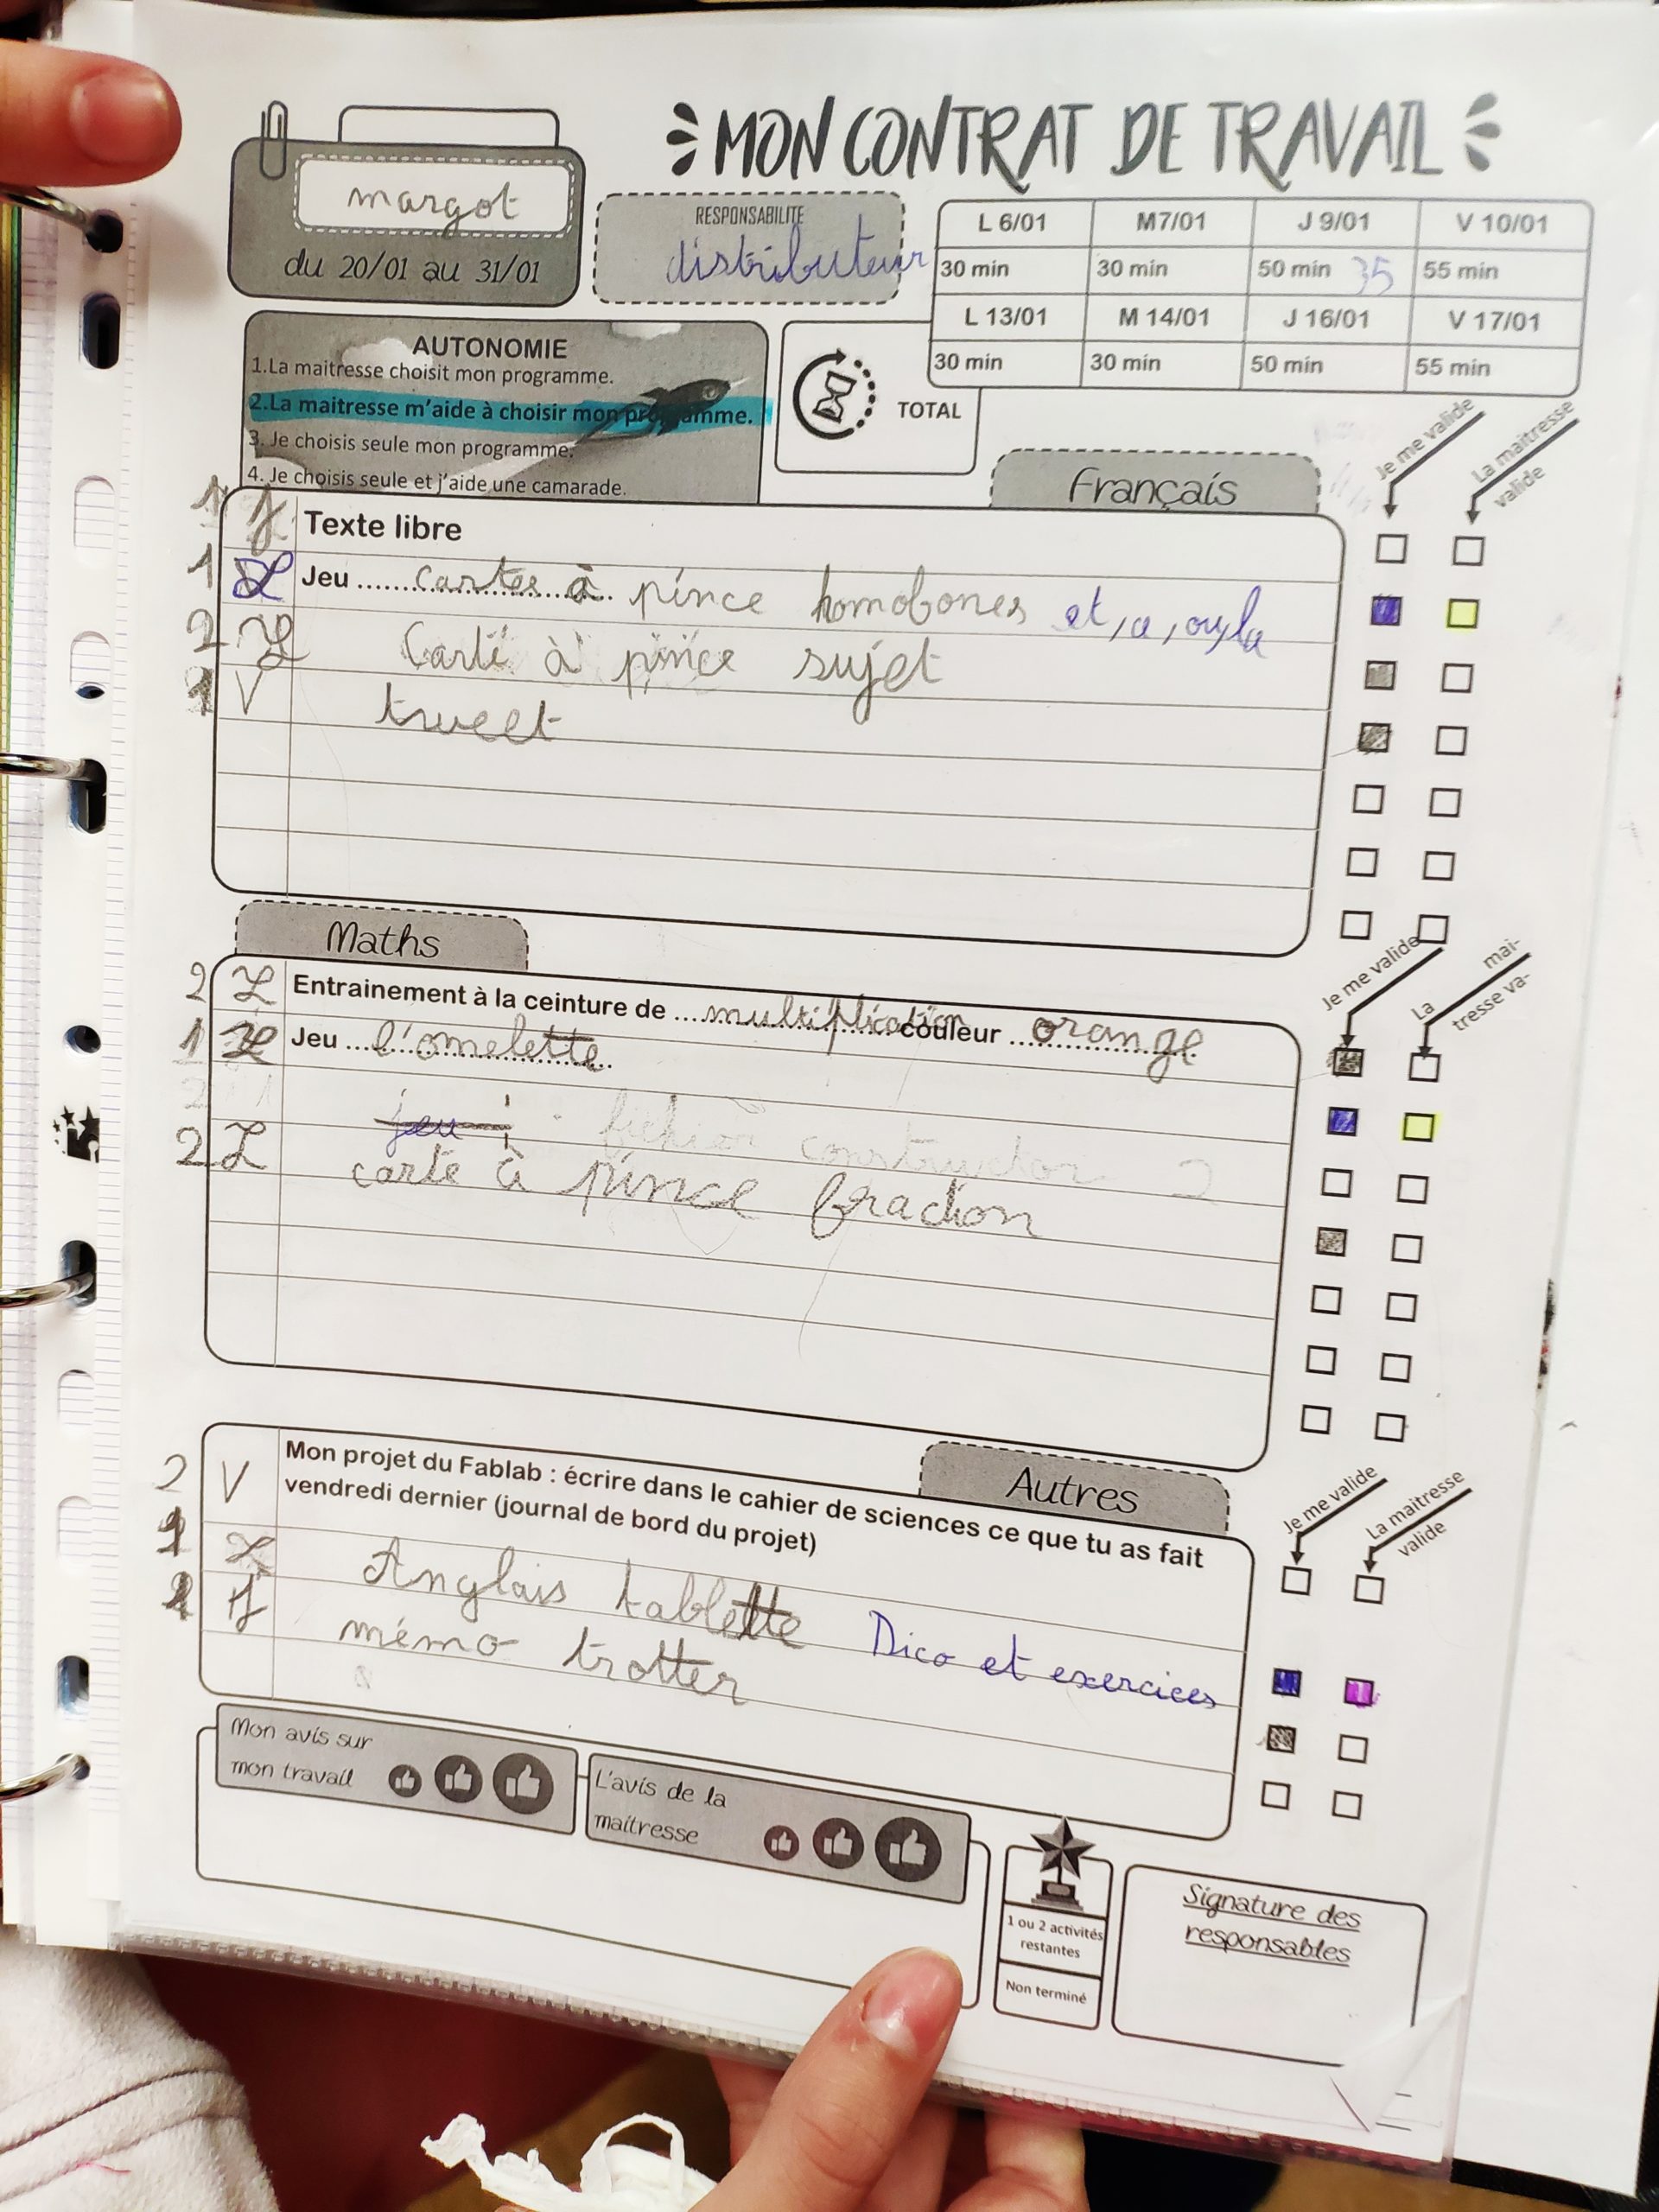 MON CONTRAT DE TRAVAIL
margot
du 20/01 au 31/01
RESPONSABILITE
distributeur
L 6/01 M7/01 J 9/01 V 10/01
30 min 30 min 50 min 35 55 min
L 13/01 M 14/01 J 16/01 V 17/01
30 min 30 min 50 min 55 min
AUTONOMIE
1.La maitresse choisit mon programme.
2.La maitresse m'aide à choisir mon programme.
3. Je choisis seule mon programme.
4. Je choisis seule et j'aide une camarade.
TOTAL
Français
Je me valide
La maitresse valide
1 J Texte libre
1 L Jeu ...... cartes à pince homobones et, a, ou, la
2 L Carte à pince sujet
1 V tweet
Maths
Je me valide
La mai-
tresse va-
2 L Entrainement à la ceinture de ... multiplication couleur ... orange
1 L Jeu ... l'omelette
jeu : fichier constructor 2
2 L carte à pince fraction
Autres
Je me valide
La maitresse valide
2 V Mon projet du Fablab : écrire dans le cahier de sciences ce que tu as fait
vendredi dernier (journal de bord du projet)
Anglais tablette Dico et exercices
mémo trotter
Mon avis sur
mon travail
L'avis de la
maitresse
1 ou 2 activités
restantes
Non terminé
Signature des
responsables